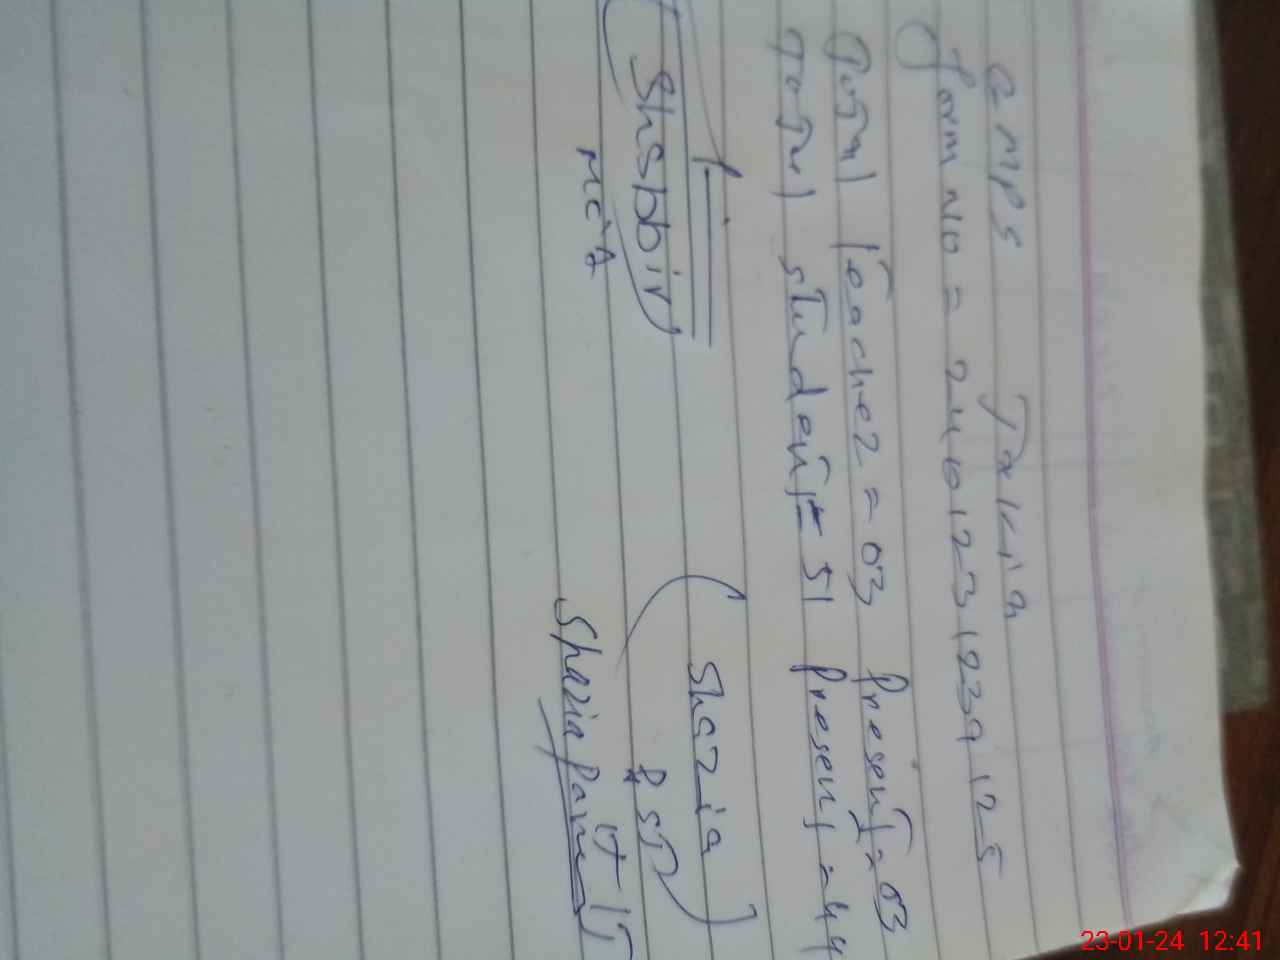 GMPS Takia
form No = 2401231239125
Total Teacher = 03 Present = 03
Total Student = 51 Present = 44
(Shabbir)
(Shazia
PST)
Shazia
23-01-24 12:41